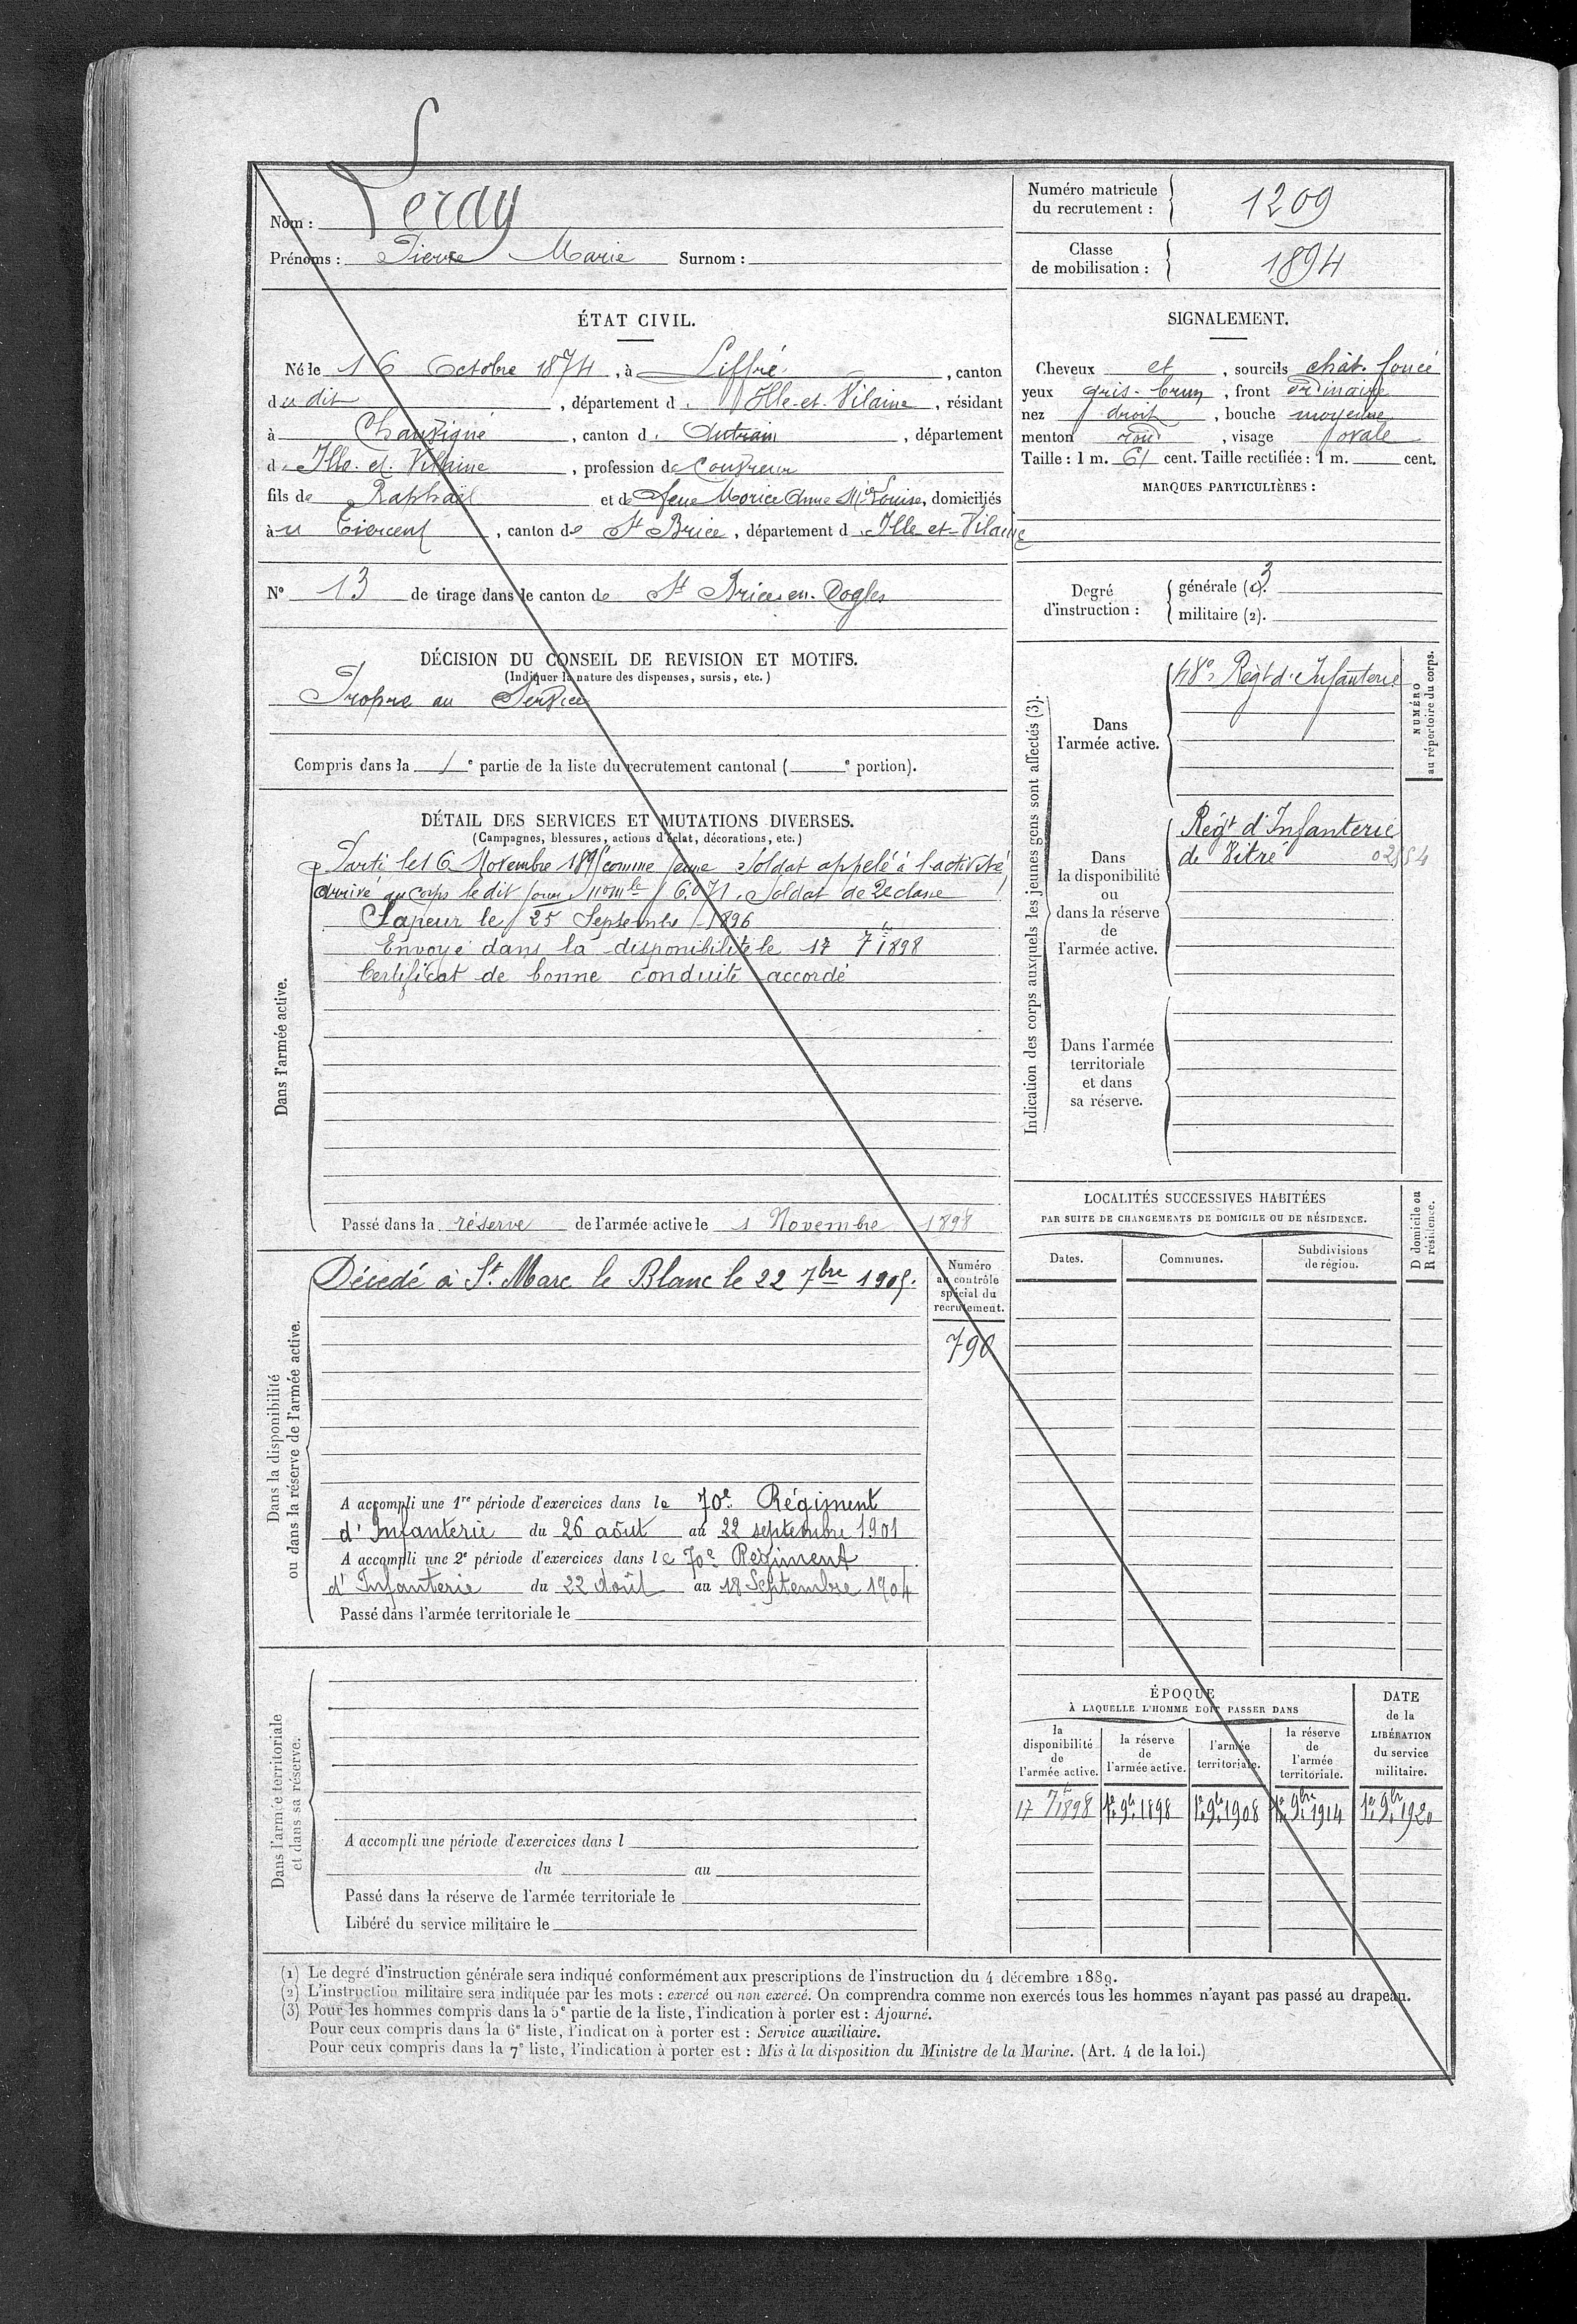 Nom : Leray
Prénoms : Pierre Marie Surnom :
Numéro matricule
du recrutement :
1209
Classe
de mobilisation :
1894
ÉTAT CIVIL.
Né le 16 Octobre 1874, à Liffré, canton
du dit, département d. Ille-et-Vilaine, résidant
à Chauvigné, canton d. Antrain, département
d. Ille-et-Vilaine, profession de Couvreur
fils de Raphaël et de feue Morice Anne Mie Louise, domiciliés
au Tiercent, canton de St Brice, département d. Ille-et-Vilaine
N° 13 de tirage dans le canton de St Brice-en-Cogles
DÉCISION DU CONSEIL DE REVISION ET MOTIFS.
(Indiquer la nature des dispenses, sursis, etc.)
Propre au Service
Compris dans la 1e partie de la liste du recrutement cantonal ( e portion).
DÉTAIL DES SERVICES ET MUTATIONS DIVERSES.
(Campagnes, blessures, actions d'éclat, décorations, etc.)
Dans l'armée active.
Parti le 16 Novembre 1895 comme jeune soldat appelé à l'activité
arrivé au corps le dit jour, nom le 6.071. Soldat de 2e classe
Sapeur le 25 Septembre 1896
Envoyé dans la disponibilité le 17 7bre 1898
Certificat de bonne conduite accordé
Passé dans la réserve de l'armée active le 1 Novembre 1898
Dans la disponibilité
ou dans la réserve de l'armée active.
Décédé à St. Marc le Blanc le 22 7bre 1905.
Numéro
au contrôle
spécial du
recrutement.
790
A accompli une 1re période d'exercices dans le 70e Régiment
d'Infanterie du 26 août au 22 septembre 1901
A accompli une 2e période d'exercices dans le 70e Régiment
d'Infanterie du 22 août au 18 Septembre 1904
Passé dans l'armée territoriale le
Dans l'armée territoriale
et dans sa réserve.
A accompli une période d'exercices dans l
du au
Passé dans la réserve de l'armée territoriale le
Libéré du service militaire le
SIGNALEMENT.
Cheveux et, sourcils chât. foncé
yeux gris-brun, front ordinaire
nez droit, bouche moyenne
menton rond, visage ovale
Taille : 1 m. 61 cent. Taille rectifiée : 1 m. cent.
MARQUES PARTICULIÈRES :
Degré
d'instruction :
générale (1). 3
militaire (2).
Indication des corps auxquels les jeunes gens sont affectés (3).
Dans
l'armée active.
48e Régt d'Infanterie
NUMÉRO
au répertoire du corps.
Dans
la disponibilité
ou
dans la réserve
de
l'armée active.
Régt d'Infanterie
de Vitré
Dans l'armée
territoriale
et dans
sa réserve.
LOCALITÉS SUCCESSIVES HABITÉES
PAR SUITE DE CHANGEMENTS DE DOMICILE OU DE RÉSIDENCE.
Dates. Communes. Subdivisions
de région.
D domicile ou
R résidence.
ÉPOQUE
À LAQUELLE L'HOMME DOIT PASSER DANS
la
disponibilité
de
l'armée active.
la réserve
de
l'armée active.
l'armée
territoriale.
la réserve
de
l'armée
territoriale.
DATE
de la
LIBÉRATION
du service
militaire.
17 7bre 1898 1er 9bre 1898 1er 9bre 1908 1er 9bre 1914 1er 9bre 1920
(1) Le degré d'instruction générale sera indiqué conformément aux prescriptions de l'instruction du 4 décembre 1889.
(2) L'instruction militaire sera indiquée par les mots : exercé ou non exercé. On comprendra comme non exercés tous les hommes n'ayant pas passé au drapeau.
(3) Pour les hommes compris dans la 5e partie de la liste, l'indication à porter est : Ajourné.
Pour ceux compris dans la 6e liste, l'indicat on à porter est : Service auxiliaire.
Pour ceux compris dans la 7e liste, l'indication à porter est : Mis à la disposition du Ministre de la Marine. (Art. 4 de la loi.)